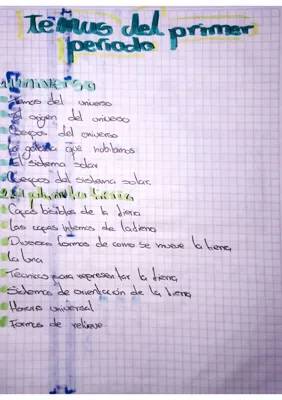 Temas del primer
periodo
1 Universo
Temas del universo
El origen del universo
Cuerpos del universo
La galaxia que habitamos
El sistema solar
Cuerpos del sistema solar.
2 El planeta tierra
Capas bisibles de la tierra
Las capas internas de la tierra
Diversas formas de como se mueve la tierra
La luna
Tecnicas para representar la tierra
Sistemas de orientación de la tierra
Horario universal
Formas de relieve